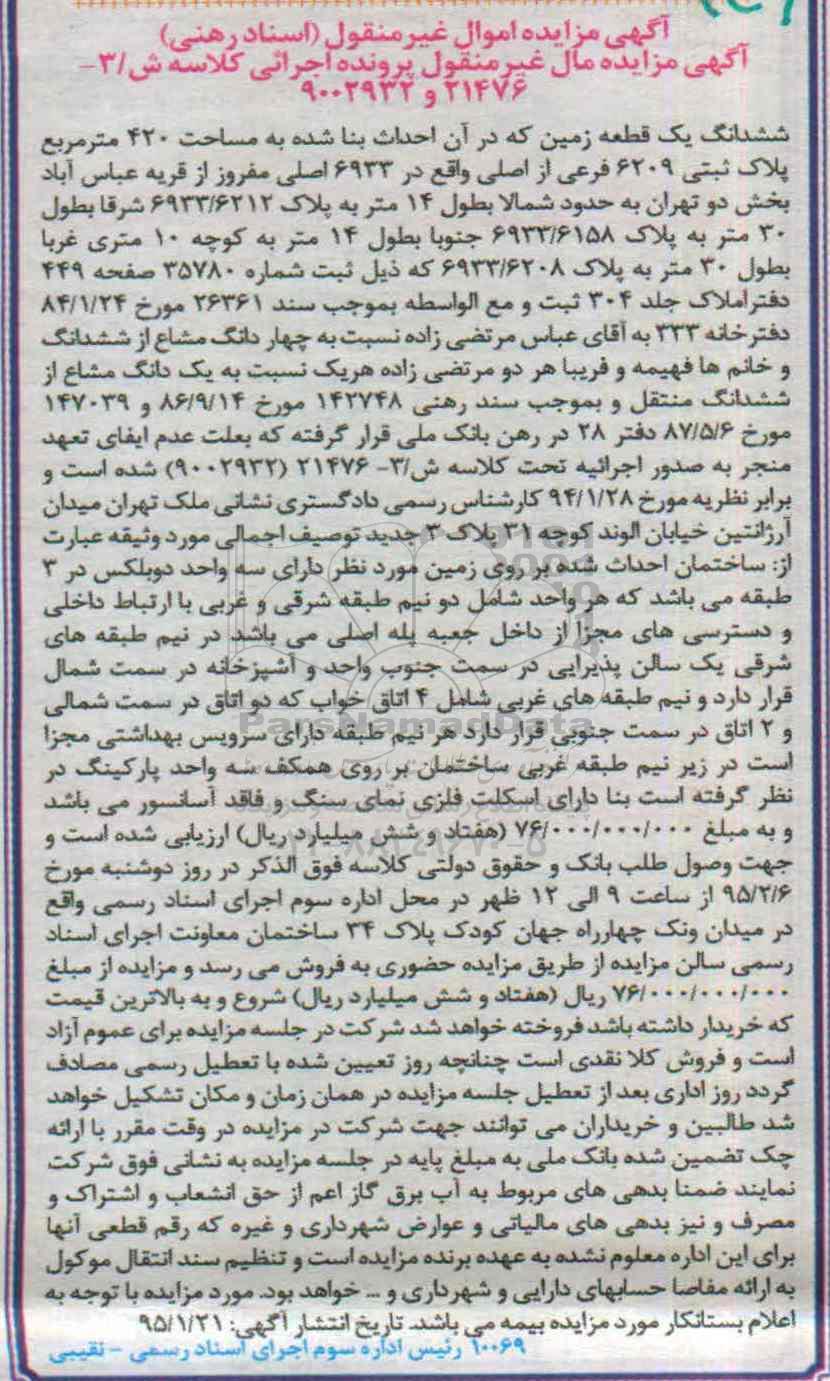 آگهی مزایده اموال غیرمنقول (اسناد رهنی)
آگهی مزایده مال غیرمنقول پرونده اجرائی کلاسه ش/۳-
۲۱۴۷۶ و ۹۰۰۲۹۳۲
ششدانگ یک قطعه زمین که در آن احداث بنا شده به مساحت ۴۲۰ مترمربع
پلاک ثبتی ۶۲۰۹ فرعی از اصلی واقع در ۶۹۳۳ اصلی مفروز از قریه عباس آباد
بخش دو تهران به حدود شمالا بطول ۱۴ متر به پلاک ۶۹۳۳/۶۲۱۲ شرقا بطول
۳۰ متر به پلاک ۶۹۳۳/۶۱۵۸ جنوبا بطول ۱۴ متر به کوچه ۱۰ متری غربا
بطول ۳۰ متر به پلاک ۶۹۳۳/۶۲۰۸ که ذیل ثبت شماره ۳۵۷۸۰ صفحه ۴۴۹
دفتراملاک جلد ۳۰۴ ثبت و مع الواسطه بموجب سند ۲۶۳۶۱ مورخ ۸۴/۱/۲۴
دفترخانه ۳۳۳ به آقای عباس مرتضی زاده نسبت به چهار دانگ مشاع از ششدانگ
و خانم ها فهیمه و فریبا هر دو مرتضی زاده هریک نسبت به یک دانگ مشاع از
ششدانگ منتقل و بموجب سند رهنی ۱۴۲۷۴۸ مورخ ۸۶/۹/۱۴ و ۱۴۷۰۳۹
مورخ ۸۷/۵/۶ دفتر ۲۸ در رهن بانک ملی قرار گرفته که بعلت عدم ایفای تعهد
منجر به صدور اجرائیه تحت کلاسه ش/۳- ۲۱۴۷۶ (۹۰۰۲۹۳۲) شده است و
برابر نظریه مورخ ۹۴/۱/۲۸ کارشناس رسمی دادگستری نشانی ملک تهران میدان
آرژانتین خیابان الوند کوچه ۳۱ پلاک ۳ جدید توصیف اجمالی مورد وثیقه عبارت
از: ساختمان احداث شده بر روی زمین مورد نظر دارای سه واحد دوبلکس در ۳
طبقه می باشد که هر واحد شامل دو نیم طبقه شرقی و غربی با ارتباط داخلی
و دسترسی های مجزا از داخل جعبه پله اصلی می باشد در نیم طبقه های
شرقی یک سالن پذیرایی در سمت جنوب واحد و آشپزخانه در سمت شمال
قرار دارد و نیم طبقه های غربی شامل ۴ اتاق خواب که دو اتاق در سمت شمالی
و ۲ اتاق در سمت جنوبی قرار دارد هر نیم طبقه دارای سرویس بهداشتی مجزا
است در زیر نیم طبقه غربی ساختمان بر روی همکف سه واحد پارکینگ در
نظر گرفته است بنا دارای اسکلت فلزی نمای سنگ و فاقد آسانسور می باشد
و به مبلغ ۷۶/۰۰۰/۰۰۰/۰۰۰ (هفتاد و شش میلیارد ریال) ارزیابی شده است و
جهت وصول طلب بانک و حقوق دولتی کلاسه فوق الذکر در روز دوشنبه مورخ
۹۵/۲/۶ از ساعت ۹ الی ۱۲ ظهر در محل اداره سوم اجرای اسناد رسمی واقع
در میدان ونک چهارراه جهان کودک پلاک ۳۴ ساختمان معاونت اجرای اسناد
رسمی سالن مزایده از طریق مزایده حضوری به فروش می رسد و مزایده از مبلغ
۷۶/۰۰۰/۰۰۰/۰۰۰ ریال (هفتاد و شش میلیارد ریال) شروع و به بالاترین قیمت
که خریدار داشته باشد فروخته خواهد شد شرکت در جلسه مزایده برای عموم آزاد
است و فروش کلا نقدی است چنانچه روز تعیین شده با تعطیل رسمی مصادف
گردد روز اداری بعد از تعطیل جلسه مزایده در همان زمان و مکان تشکیل خواهد
شد طالبین و خریداران می توانند جهت شرکت در مزایده در وقت مقرر با ارائه
چک تضمین شده بانک ملی به مبلغ پایه در جلسه مزایده به نشانی فوق شرکت
نمایند ضمنا بدهی های مربوط به آب برق گاز اعم از حق انشعاب و اشتراک و
مصرف و نیز بدهی های مالیاتی و عوارض شهرداری و غیره که رقم قطعی آنها
برای این اداره معلوم نشده به عهده برنده مزایده است و تنظیم سند انتقال موکول
به ارائه مفاصا حسابهای دارایی و شهرداری و ... خواهد بود. مورد مزایده با توجه به
اعلام بستانکار مورد مزایده بیمه می باشد. تاریخ انتشار آگهی: ۹۵/۱/۲۱
۱۰۰۶۹ رئیس اداره سوم اجرای اسناد رسمی - نقیبی
ParsNamadData